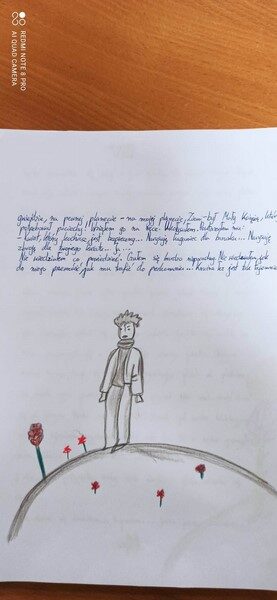 REDMI NOTE 8 PRO
AI QUAD CAMERA
gwieździe, na pewnej planecie - na mojej planecie, Ziemi - był Mały Książę, który
potrzebował pociechy. Wziąłem go na ręce. Kołysałem. Mówiłem mu:
- Kwiat, który kochasz, jest bezpieczny... Narysuję kaganiec dla baranka... Narysuję
zbroję dla twojego kwiatu... Ja...
Nie wiedziałem co powiedzieć. Czułem się bardzo niezręczny. Nie wiedziałem jak
do niego przemówić, jak mu trafić do przekonania... Kraina łez jest tak tajemnicza